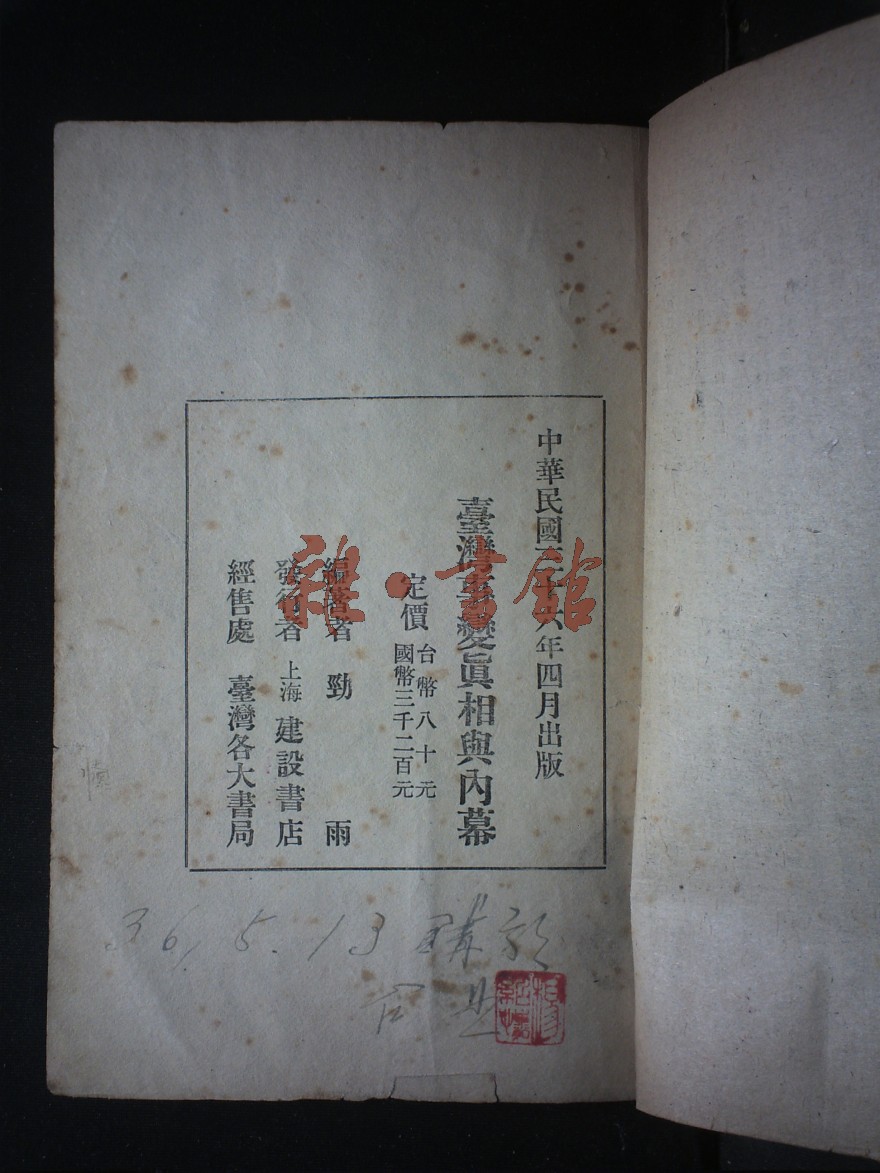 中華民國三十六年四月出版
臺灣事變眞相與內幕
定價
台幣八十元
國幣三千二百元
編著者 勁雨
發行者 上海建設書店
經售處 臺灣各大書局
雅·書館
36, 5. 13 購於